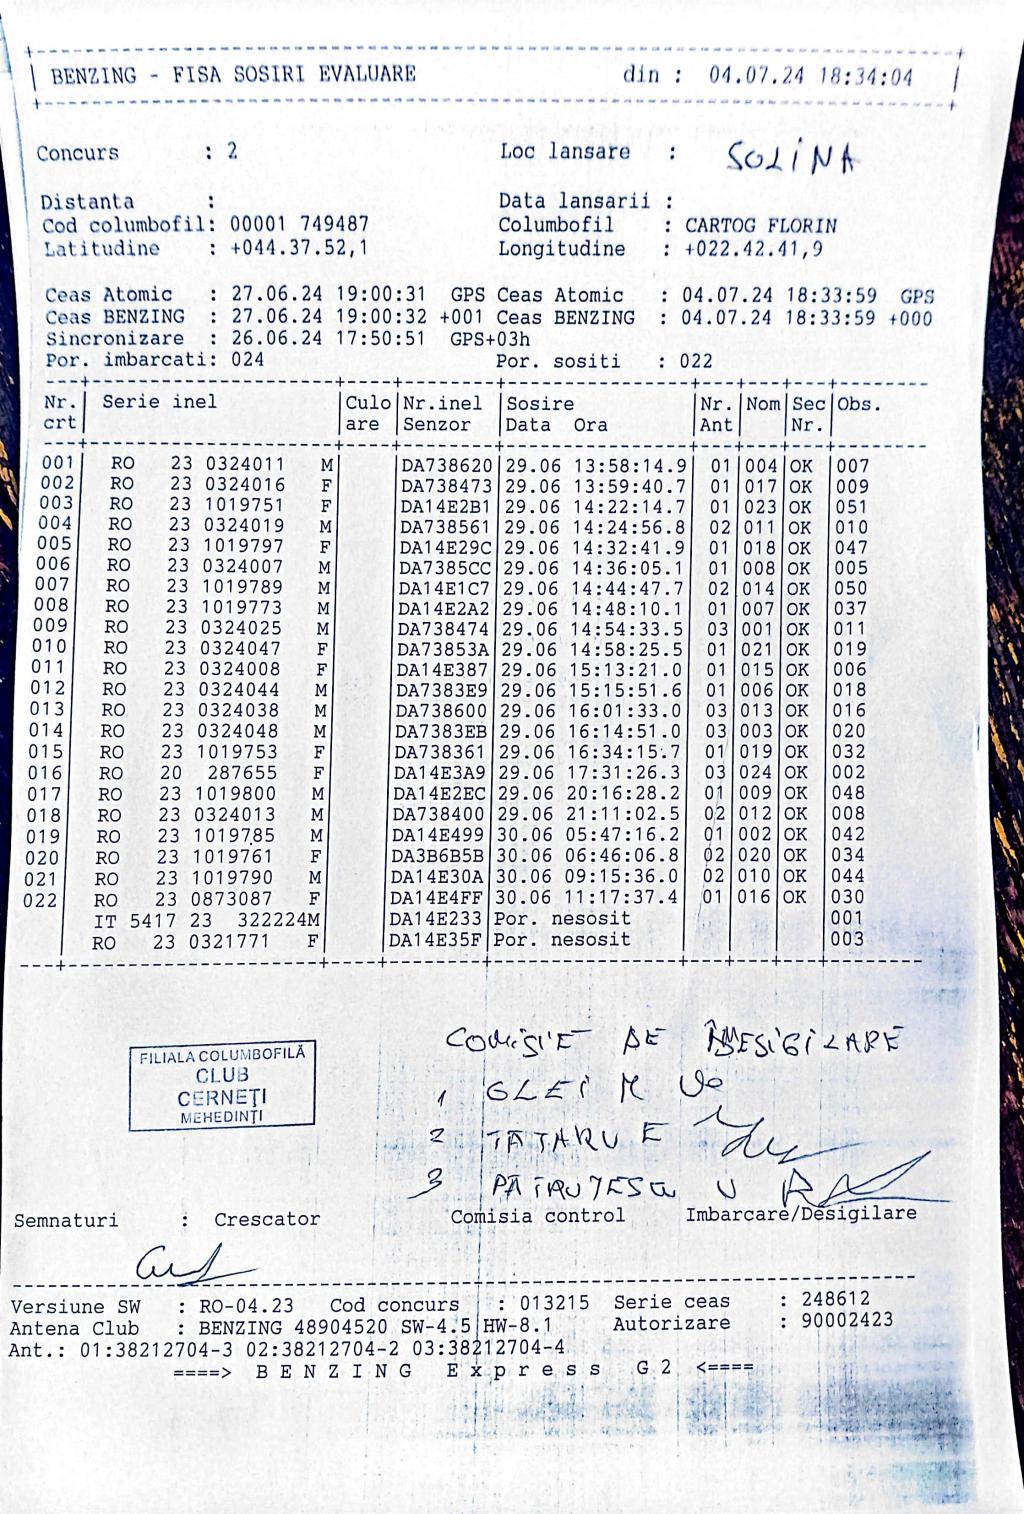 BENZING - FISA SOSIRI EVALUARE din : 04.07.24 18:34:04
Concurs : 2 Loc lansare : SOLINA
Distanta : Data lansarii :
Cod columbofil: 00001 749487 Columbofil : CARTOG FLORIN
Latitudine : +044.37.52,1 Longitudine : +022.42.41,9
Ceas Atomic : 27.06.24 19:00:31 GPS Ceas Atomic : 04.07.24 18:33:59 GPS
Ceas BENZING : 27.06.24 19:00:32 +001 Ceas BENZING : 04.07.24 18:33:59 +000
Sincronizare : 26.06.24 17:50:51 GPS+03h
Por. imbarcati: 024 Por. sositi : 022
Nr. Serie inel Culo Nr.inel Sosire Nr. Nom Sec Obs.
crt are Senzor Data Ora Ant Nr.
001 RO 23 0324011 M DA738620 29.06 13:58:14.9 01 004 OK 007
002 RO 23 0324016 F DA738473 29.06 13:59:40.7 01 017 OK 009
003 RO 23 1019751 F DA14E2B1 29.06 14:22:14.7 01 023 OK 051
004 RO 23 0324019 M DA738561 29.06 14:24:56.8 02 011 OK 010
005 RO 23 1019797 F DA14E29C 29.06 14:32:41.9 01 018 OK 047
006 RO 23 0324007 M DA7385CC 29.06 14:36:05.1 01 008 OK 005
007 RO 23 1019789 M DA14E1C7 29.06 14:44:47.7 02 014 OK 050
008 RO 23 1019773 M DA14E2A2 29.06 14:48:10.1 01 007 OK 037
009 RO 23 0324025 M DA738474 29.06 14:54:33.5 03 001 OK 011
010 RO 23 0324047 F DA73853A 29.06 14:58:25.5 01 021 OK 019
011 RO 23 0324008 F DA14E387 29.06 15:13:21.0 01 015 OK 006
012 RO 23 0324044 M DA7383E9 29.06 15:15:51.6 01 006 OK 018
013 RO 23 0324038 M DA738600 29.06 16:01:33.0 03 013 OK 016
014 RO 23 0324048 M DA7383EB 29.06 16:14:51.0 03 003 OK 020
015 RO 23 1019753 F DA738361 29.06 16:34:15.7 01 019 OK 032
016 RO 20 287655 F DA14E3A9 29.06 17:31:26.3 03 024 OK 002
017 RO 23 1019800 M DA14E2EC 29.06 20:16:28.2 01 009 OK 048
018 RO 23 0324013 M DA738400 29.06 21:11:02.5 02 012 OK 008
019 RO 23 1019785 M DA14E499 30.06 05:47:16.2 01 002 OK 042
020 RO 23 1019761 F DA3B6B5B 30.06 06:46:06.8 02 020 OK 034
021 RO 23 1019790 M DA14E30A 30.06 09:15:36.0 02 010 OK 044
022 RO 23 0873087 F DA14E4FF 30.06 11:17:37.4 01 016 OK 030
IT 5417 23 322224M DA14E233 Por. nesosit 001
RO 23 0321771 F DA14E35F Por. nesosit 003
FILIALA COLUMBOFILĂ
CLUB
CERNEŢI
MEHEDINŢI
COMISIE DE
1 GLEI M
2 TATARU E
3 PĂTRUȚESCU
Semnaturi : Crescator Comisia control Imbarcare/Desigilare
Versiune SW : RO-04.23 Cod concurs : 013215 Serie ceas : 248612
Antena Club : BENZING 48904520 SW-4.5 HW-8.1 Autorizare : 90002423
Ant.: 01:38212704-3 02:38212704-2 03:38212704-4
====> B E N Z I N G E x p r e s s G 2 <====